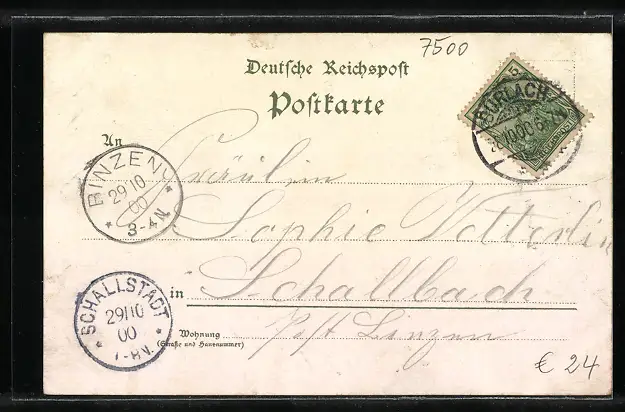 7500
Deutsche Reichspost
Postkarte
DURLACH
An
Fräulein
BINZEN
29 10
00
3-4 N
Sophie
in Schallbach
SCHALLSTADT
29 10
00
1-
Wohnung Post Binzen
(Straße und Hausnummer)
€ 24